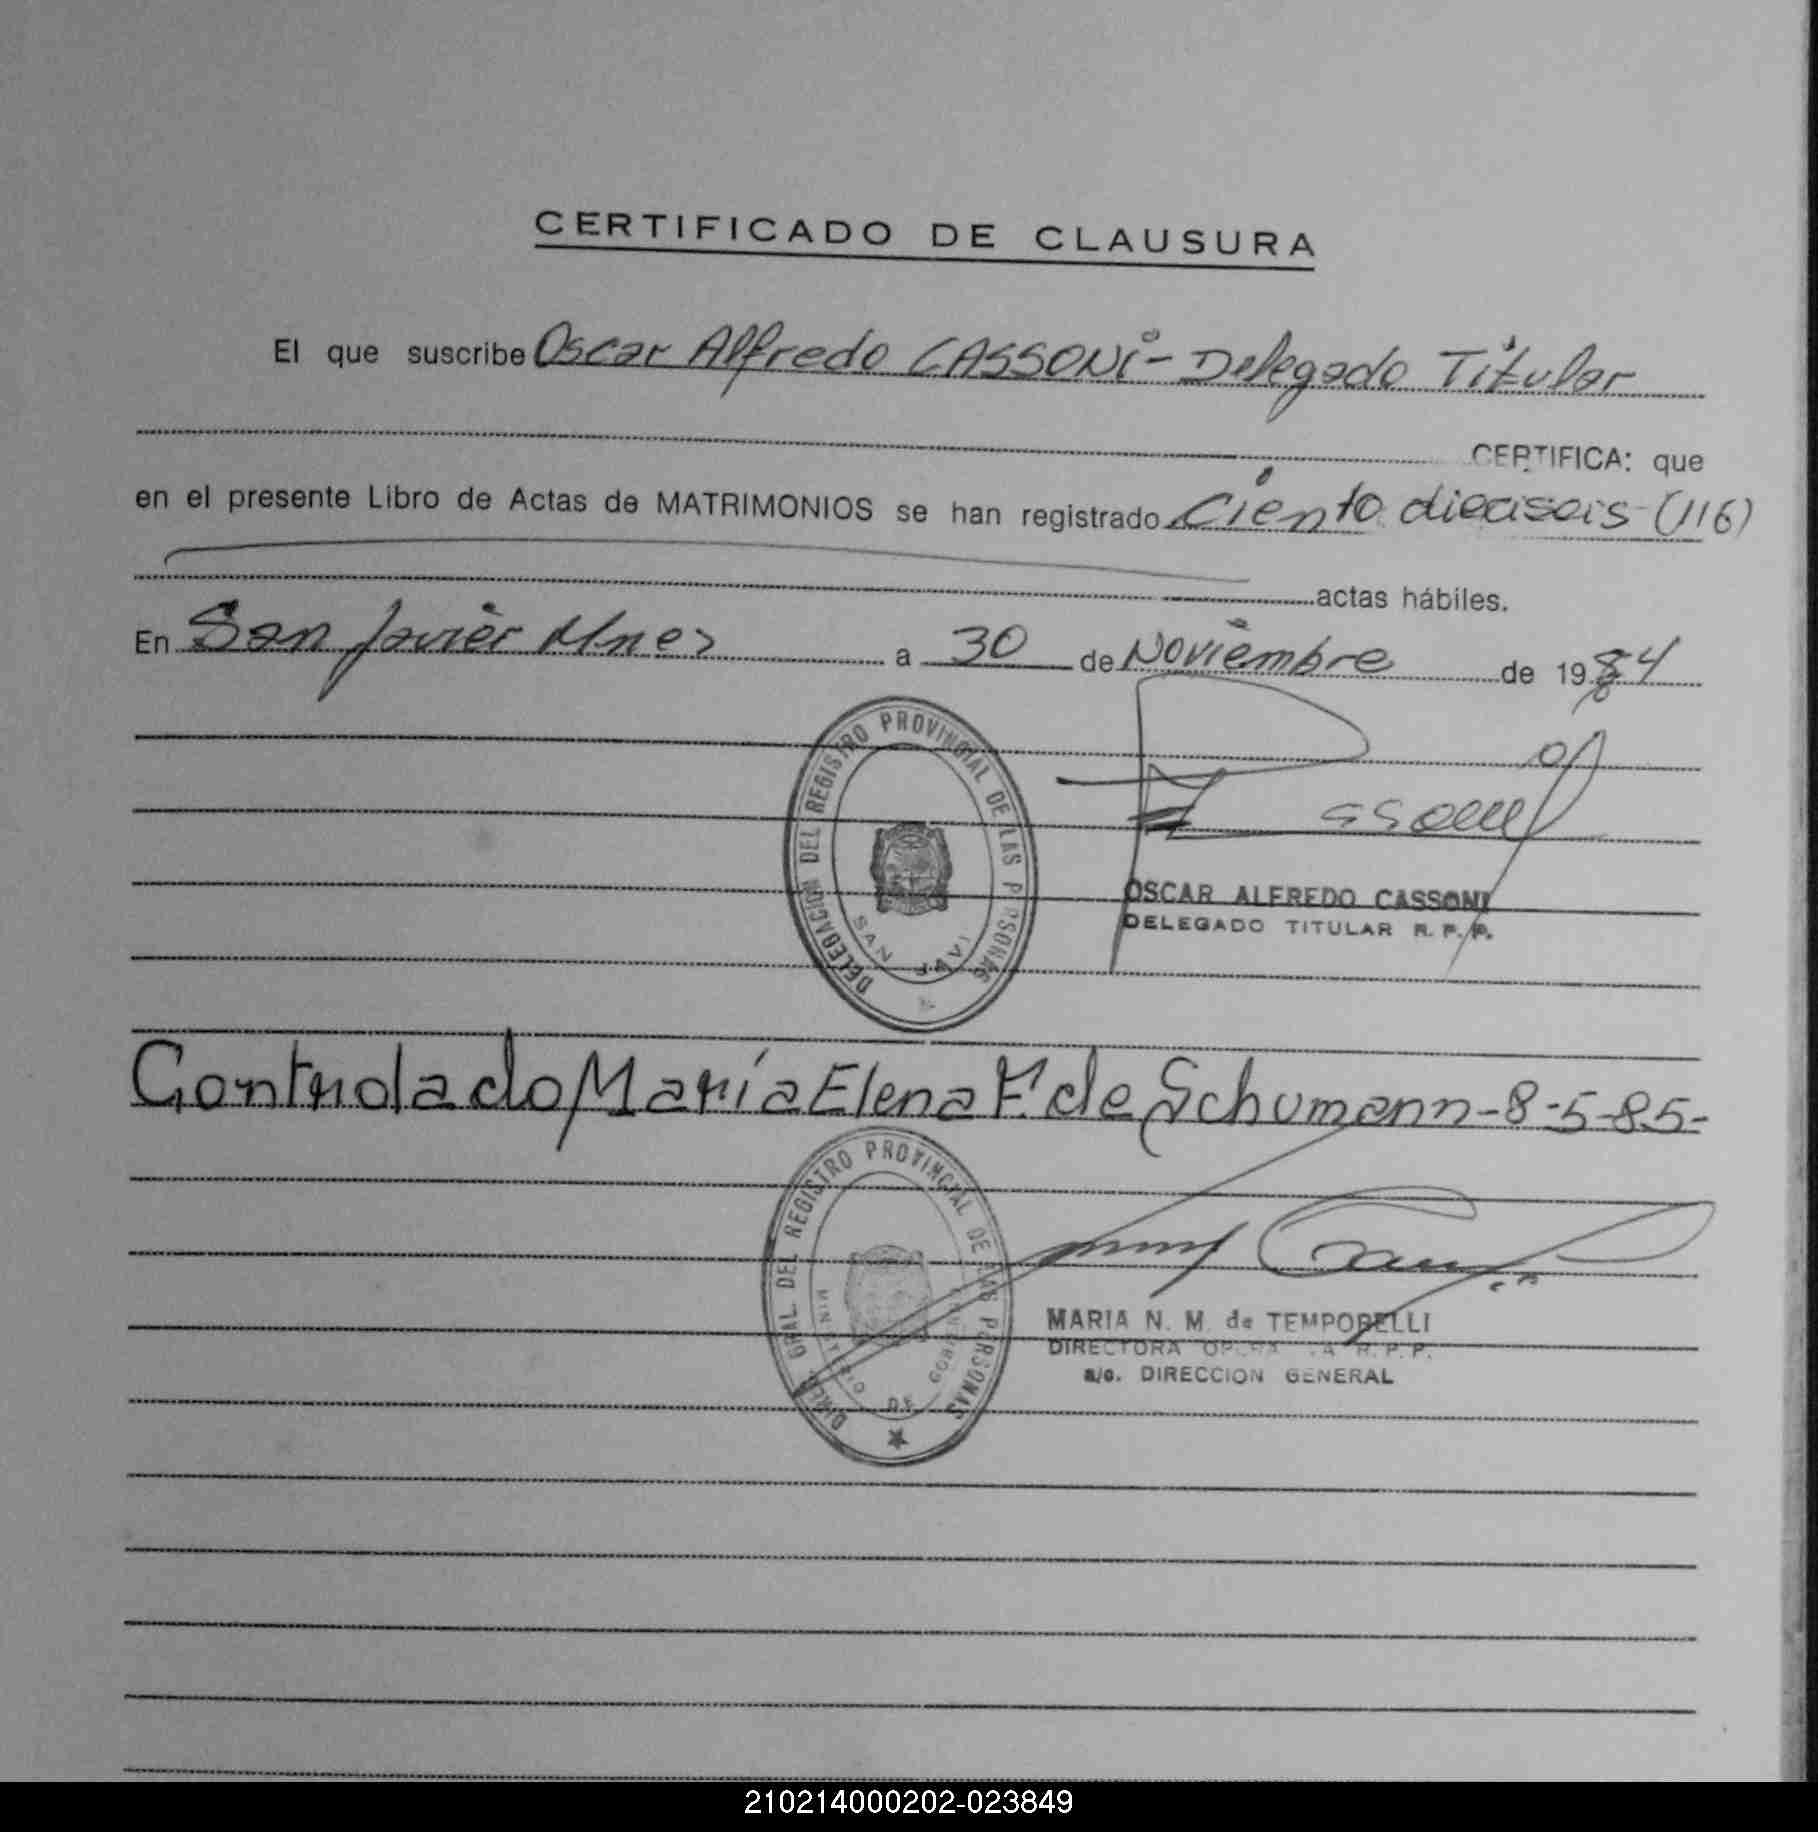 CERTIFICADO DE CLAUSURA
El que suscribe Oscar Alfredo CASSONi - Delegado Titular
CERTIFICA: que
en el presente Libro de Actas de MATRIMONIOS se han registrado Ciento dieciseis (116)
actas hábiles.
En San Javier Mnes a 30 de Noviembre de 1984
DELEGACION DEL REGISTRO PROVINCIAL DE LAS PERSONAS
SAN JAVI
OSCAR ALFREDO CASSONI
DELEGADO TITULAR R. P. P.
Controlado María Elena F. de Schumann - 8-5-85-
DIREC. GRAL. DEL REGISTRO PROVINCIAL DE LAS PERSONAS
MINISTERIO DE GOBIERNO
MARIA N. M. de TEMPORELLI
DIRECTORA R. P. P.
a/c. DIRECCION GENERAL
210214000202-023849